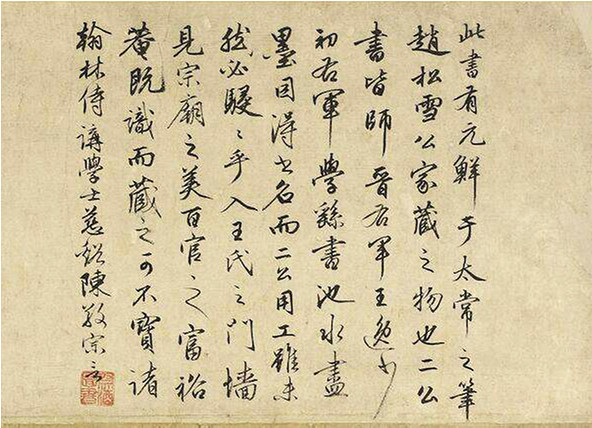 此書有元鮮于太常之筆
趙松雪公家藏之物也二公
書皆師晉右軍王逸少
初右軍學繇書池水盡
墨因得書名而二公用工雖未
然必駸〻乎入王氏之門墻
見宗廟之美百官之富裕
菴既識而藏之可不寶諸
翰林侍講學士慈谿陳敬宗